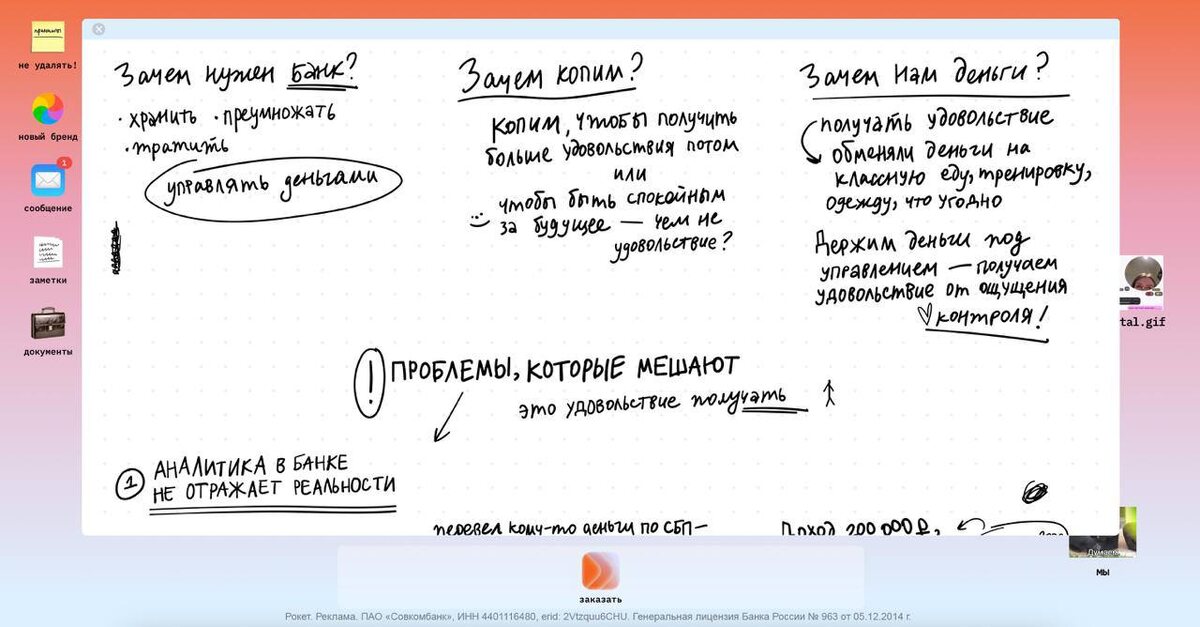 принцип
не удалять!
новый бренд
1
сообщение
заметки
документы
Зачем нужен Банк?
· хранить · преумножать
· тратить
управлять деньгами
Зачем копим?
копим, чтобы получить
больше удовольствия потом
или
чтобы быть спокойным
за будущее — чем не
удовольствие?
Зачем нам деньги?
получать удовольствие
обменяли деньги на
классную еду, тренировку,
одежду, что угодно
Держим деньги под
управлением — получаем
удовольствие от ощущения
контроля!
! ПРОБЛЕМЫ, КОТОРЫЕ МЕШАЮТ
это удовольствие получать
1 АНАЛИТИКА В БАНКЕ
НЕ ОТРАЖАЕТ РЕАЛЬНОСТИ
перевел кому-то деньги по СБП —
Доход 200 000₽,
tal.gif
Думаем
мы
заказать
Рокет. Реклама. ПАО «Совкомбанк», ИНН 4401116480, erid: 2Vtzquu6CHU. Генеральная лицензия Банка России № 963 от 05.12.2014 г.